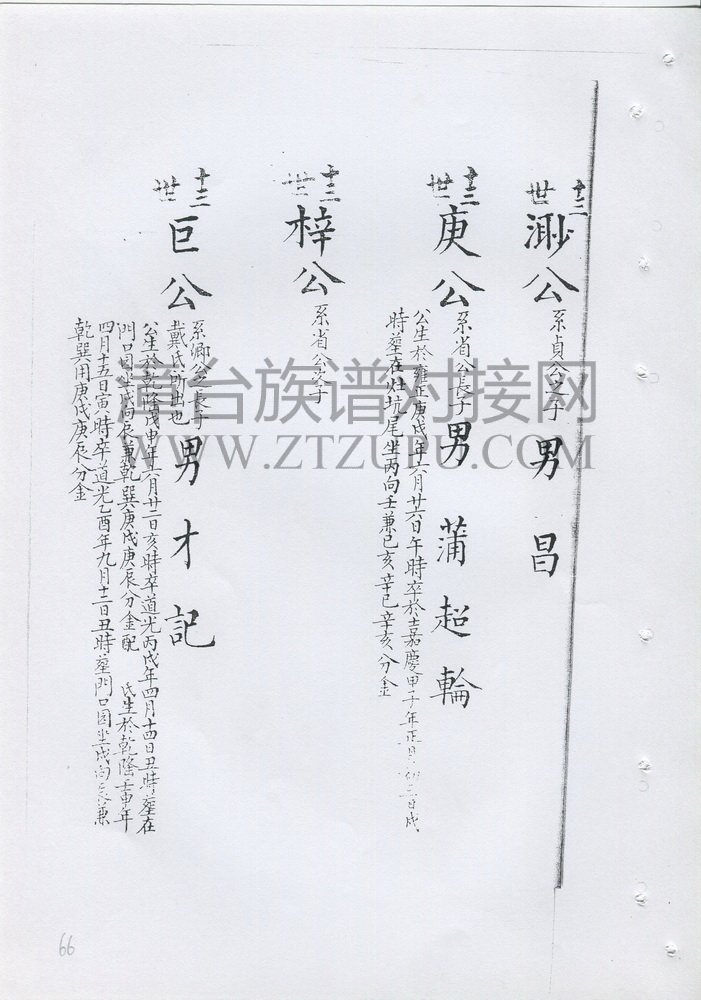 十三世 渺公 系貞公之子 男 昌
十三世 庚公 系省公長子 男 蒲 超 輪
公生於雍正庚戌年六月廿六日午時卒於嘉慶甲子年正月初三日戌
時葬在灶坑尾坐丙向壬兼巳亥辛巳辛亥分金
十三世 梓公 系省公次子
十三世 巨公 系卿公之長子 男 才 記
戴氏所出也
公生於乾隆戊申年六月廿二日亥時卒道光丙戌年四月十四日丑時葬在
門口园坐戌向辰兼乾巽庚戌庚辰分金配 氏生於乾隆壬申年
四月十五日寅時卒道光乙酉年九月十三日丑時葬門口园坐戌向辰兼
乾巽用庚戌庚辰分金
漳台族谱对接网
WWW.ZTZUPU.COM
66